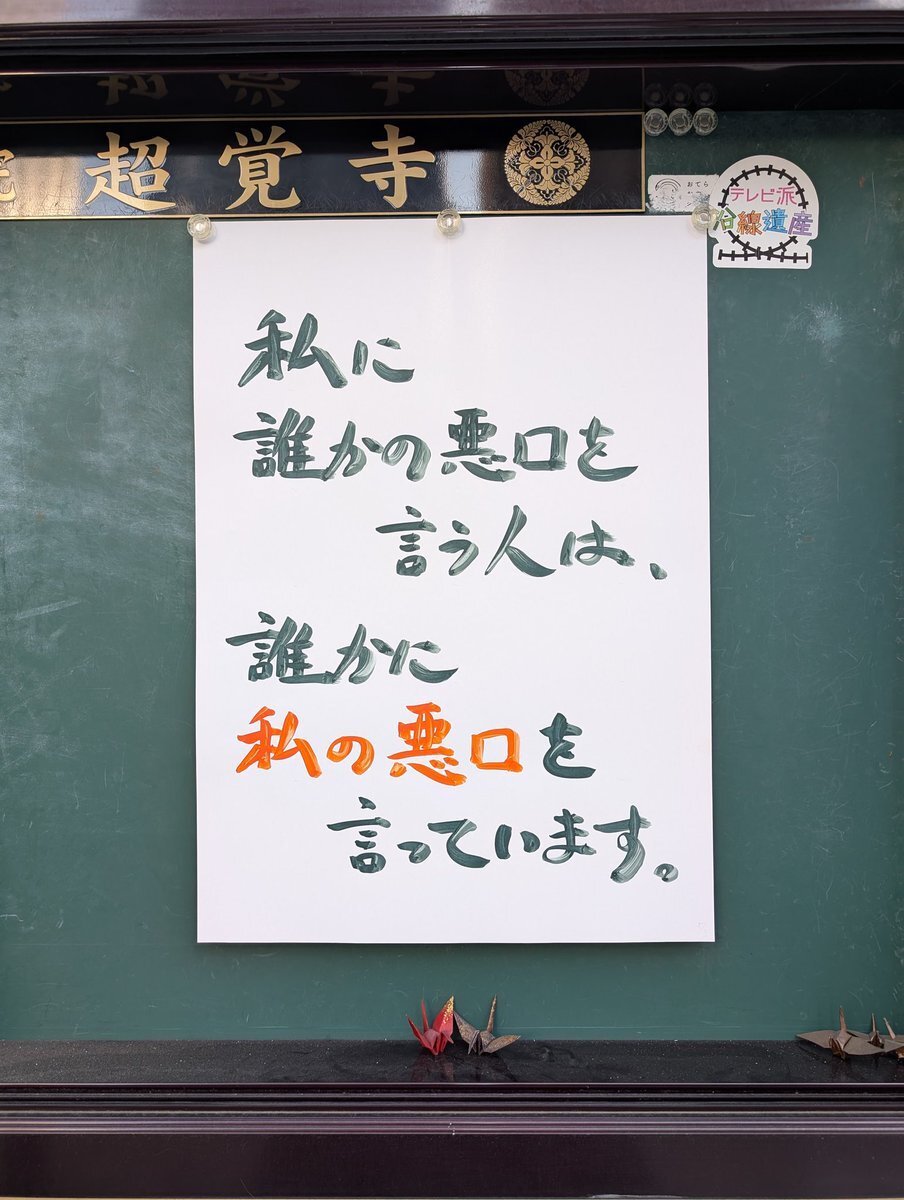 超覚寺
おてら
テレビ派
沿線遺産
私に
誰かの悪口を
言う人は、
誰かに
私の悪口を
言っています。